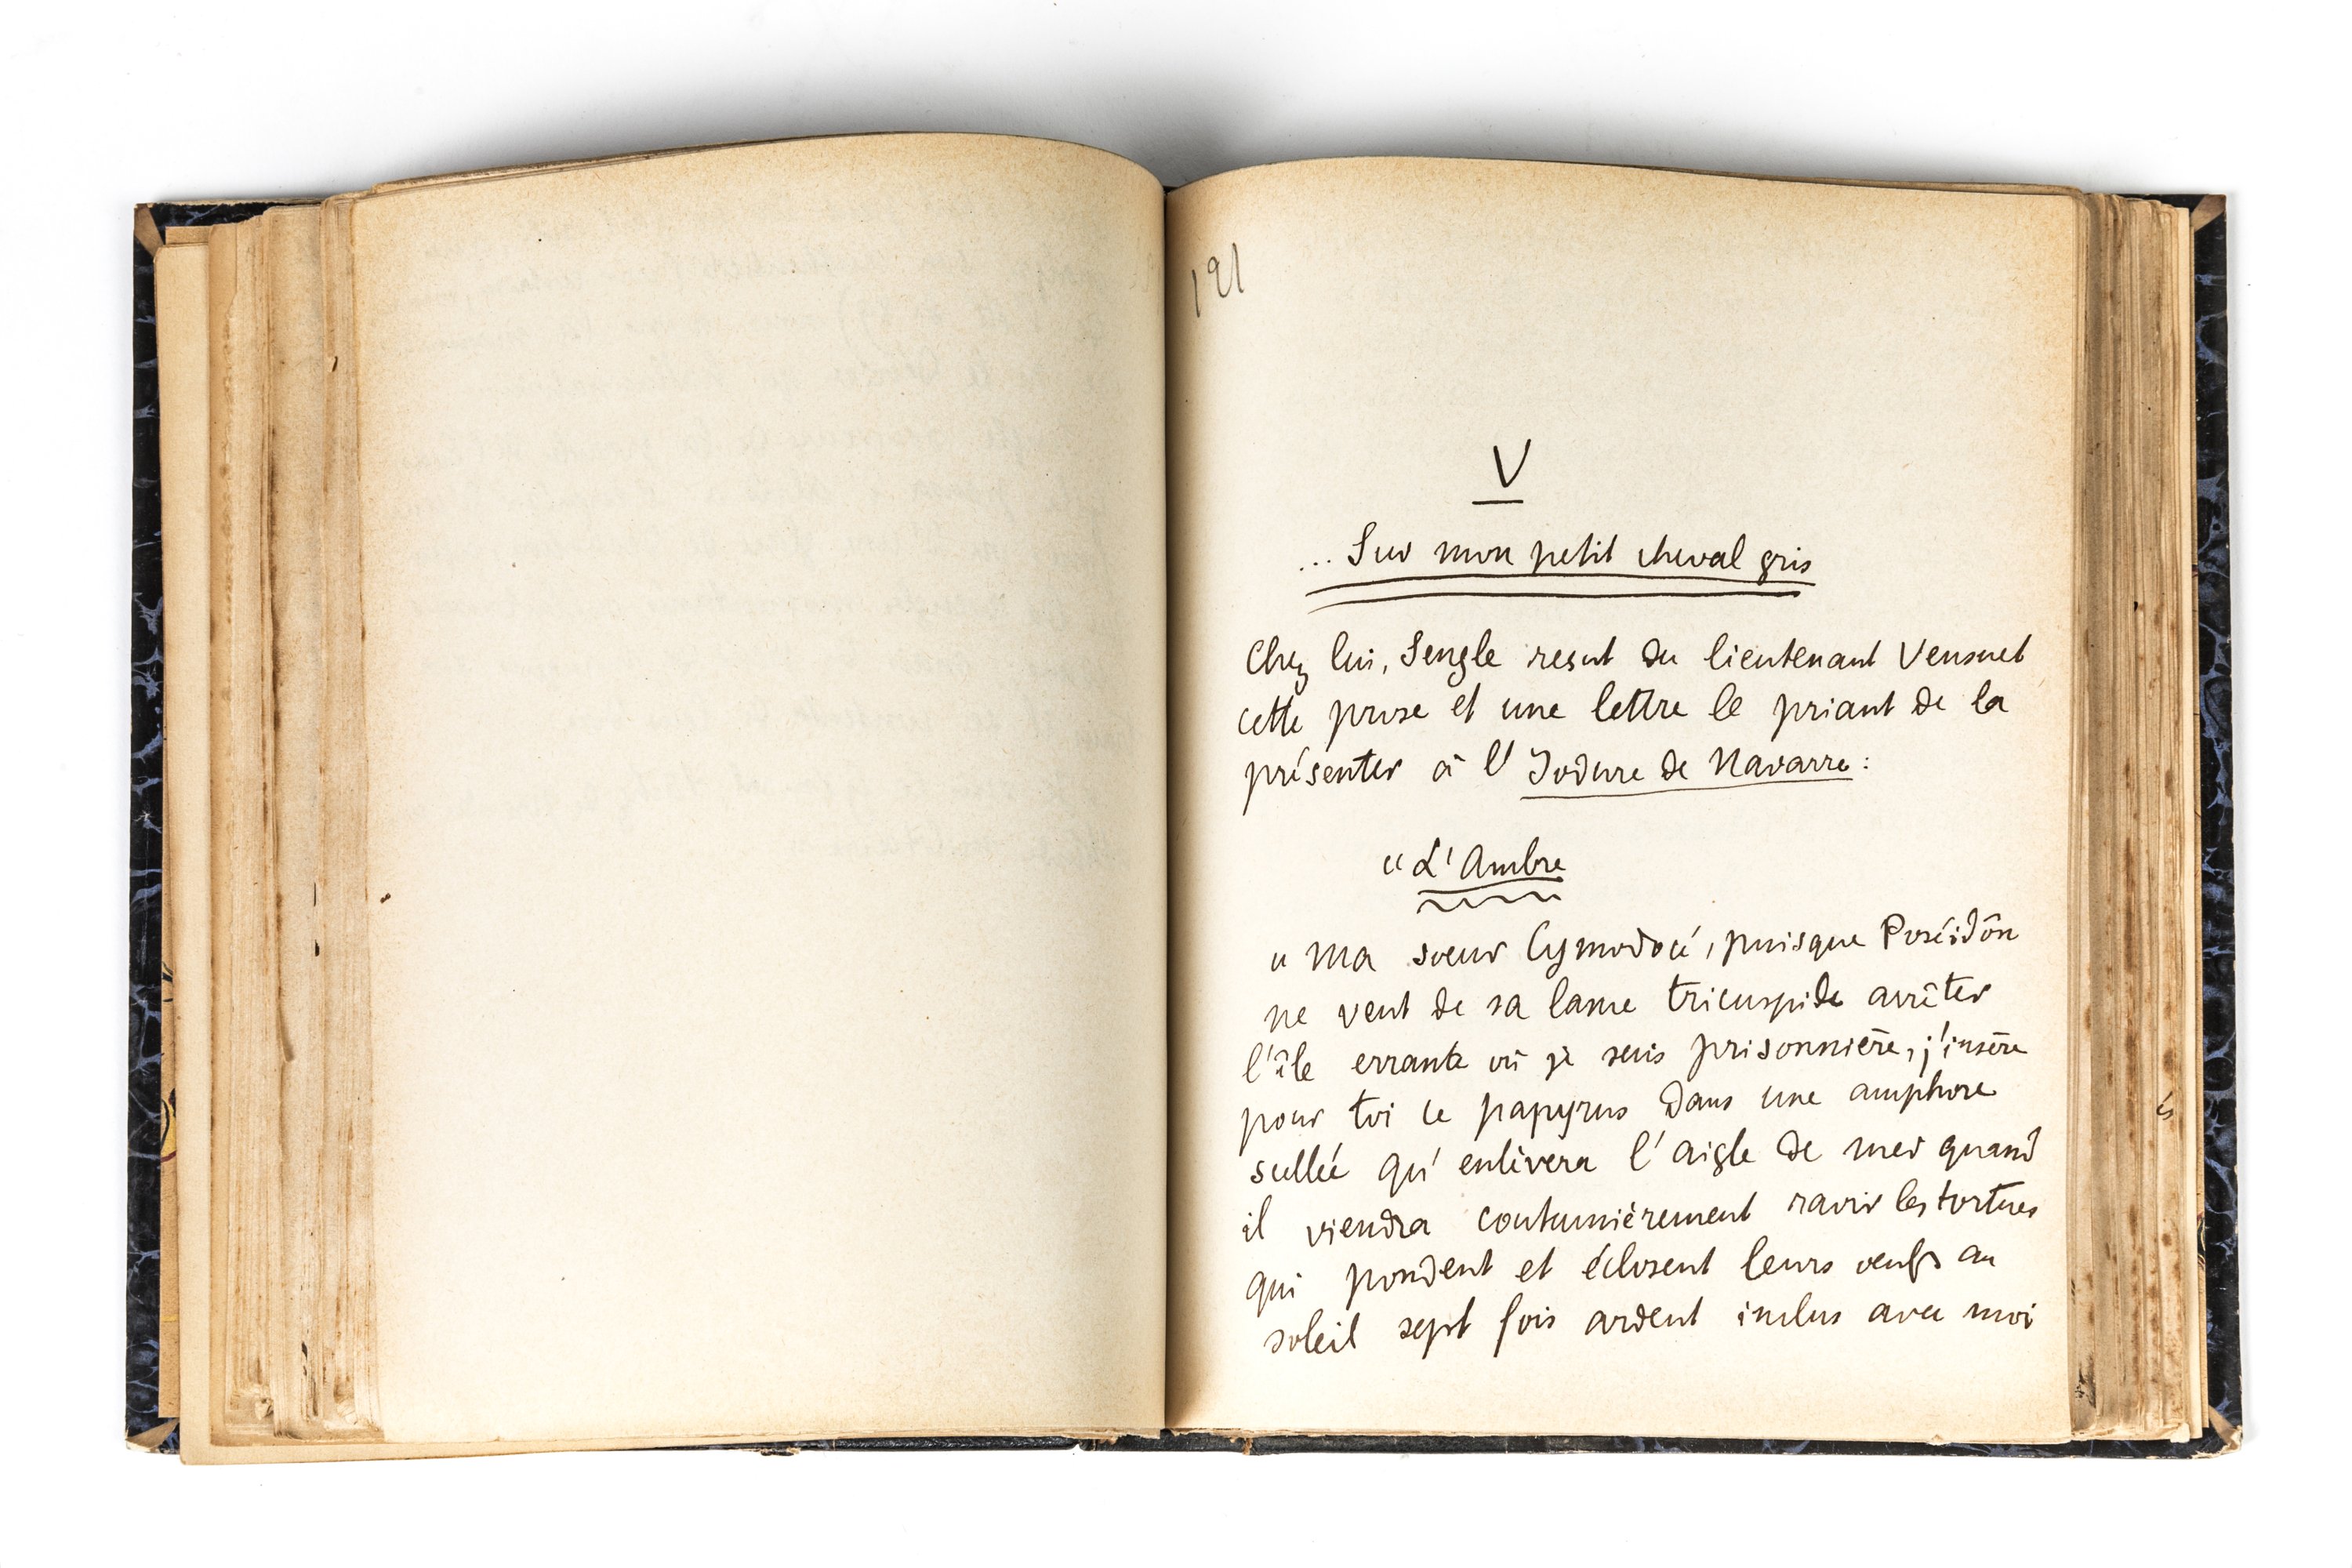 191
V
... Sur mon petit cheval gris
Chez lui, Sengle reçut du lieutenant Vensuet
cette prose et une lettre le priant de la
présenter à l'Iodure de Navarre :
« L'Ambre
« Ma soeur Cymodocé, puisque Poséidôn
ne veut de sa lame tricuspide arrêter
l'île errante où je suis prisonnière, j'insère
pour toi ce papyrus dans une amphore
scellée qu'enlèvera l'aigle de mer quand
il viendra coutumièrement ravir les tortues
qui pondent et éclosent leurs oeufs au
soleil sept fois ardent inclus avec moi